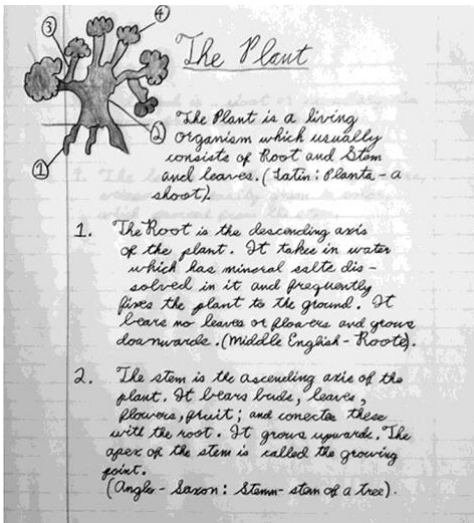 3
4
The Plant
2
1
The Plant is a living
organism which usually
consists of Root and Stem
and leaves. (Latin: Planta - a
shoot).
1. The Root is the descending axis
of the plant. It takes in water
which has mineral salts dis-
solved in it and frequently
fixes the plant to the ground. It
bears no leaves or flowers and grows
downwards. (Middle English - Roote).
2. The stem is the ascending axis of the
plant. It bears buds, leaves,
flowers, fruit; and conects these
with the root. It grows upwards. The
apex of the stem is called the growing
point.
(Anglo - Saxon: Stemn - stem of a tree).